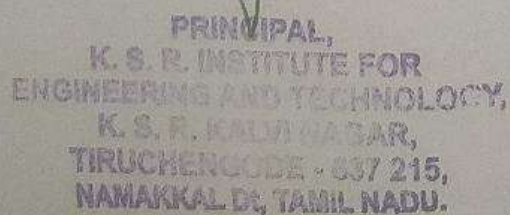 PRINCIPAL,
K. S. R. INSTITUTE FOR
ENGINEERING AND TECHNOLOGY,
K. S. R. KALVI NAGAR,
TIRUCHENGODE - 637 215,
NAMAKKAL Dt, TAMIL NADU.